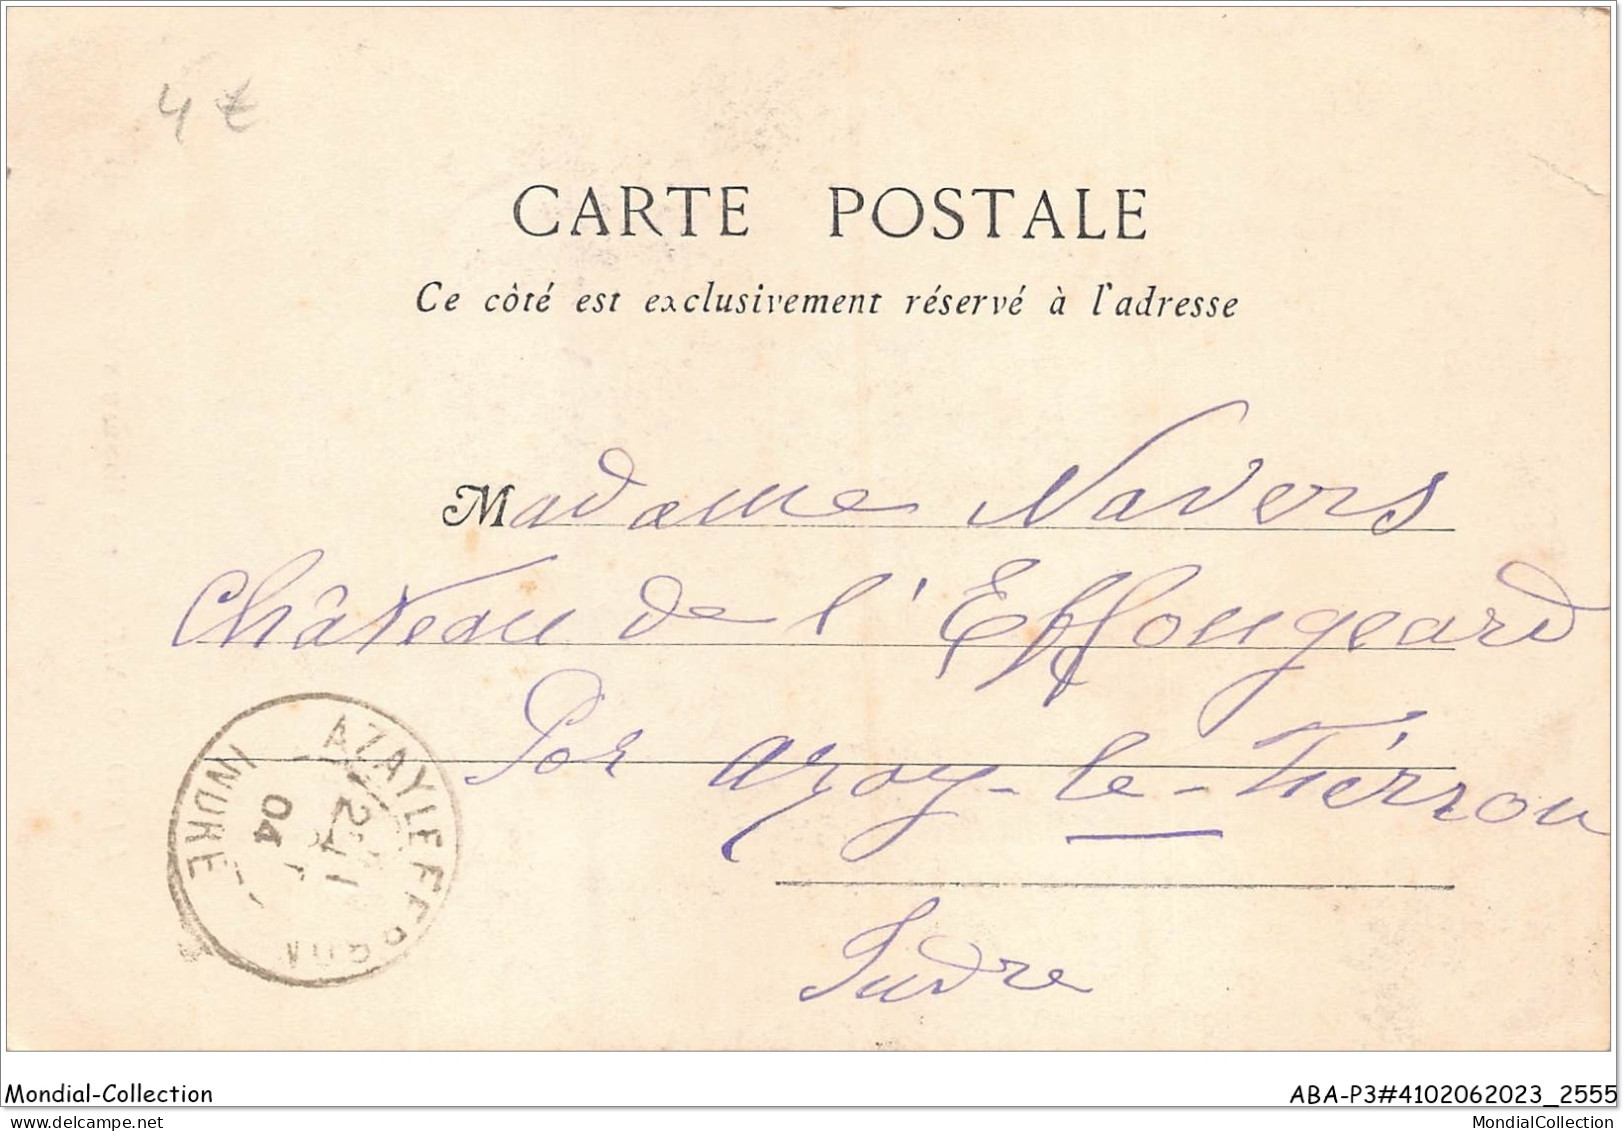 4 €
CARTE POSTALE
Ce côté est exclusivement réservé à l'adresse
Madame Navers
Château de l'Effougeard
Par Azay-le-Ferron
Indre
AZAY LE FERRON
INDRE
04
Mondial-Collection
ABA-P3#4102062023_2555
Mondial-Collection
MondialCollection